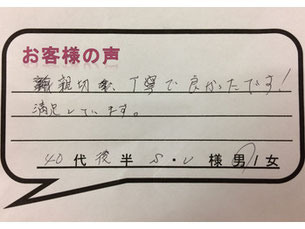 お客様の声
親切、丁寧で良かったです!
満足しています。
40代後半 S・U 様 男/女